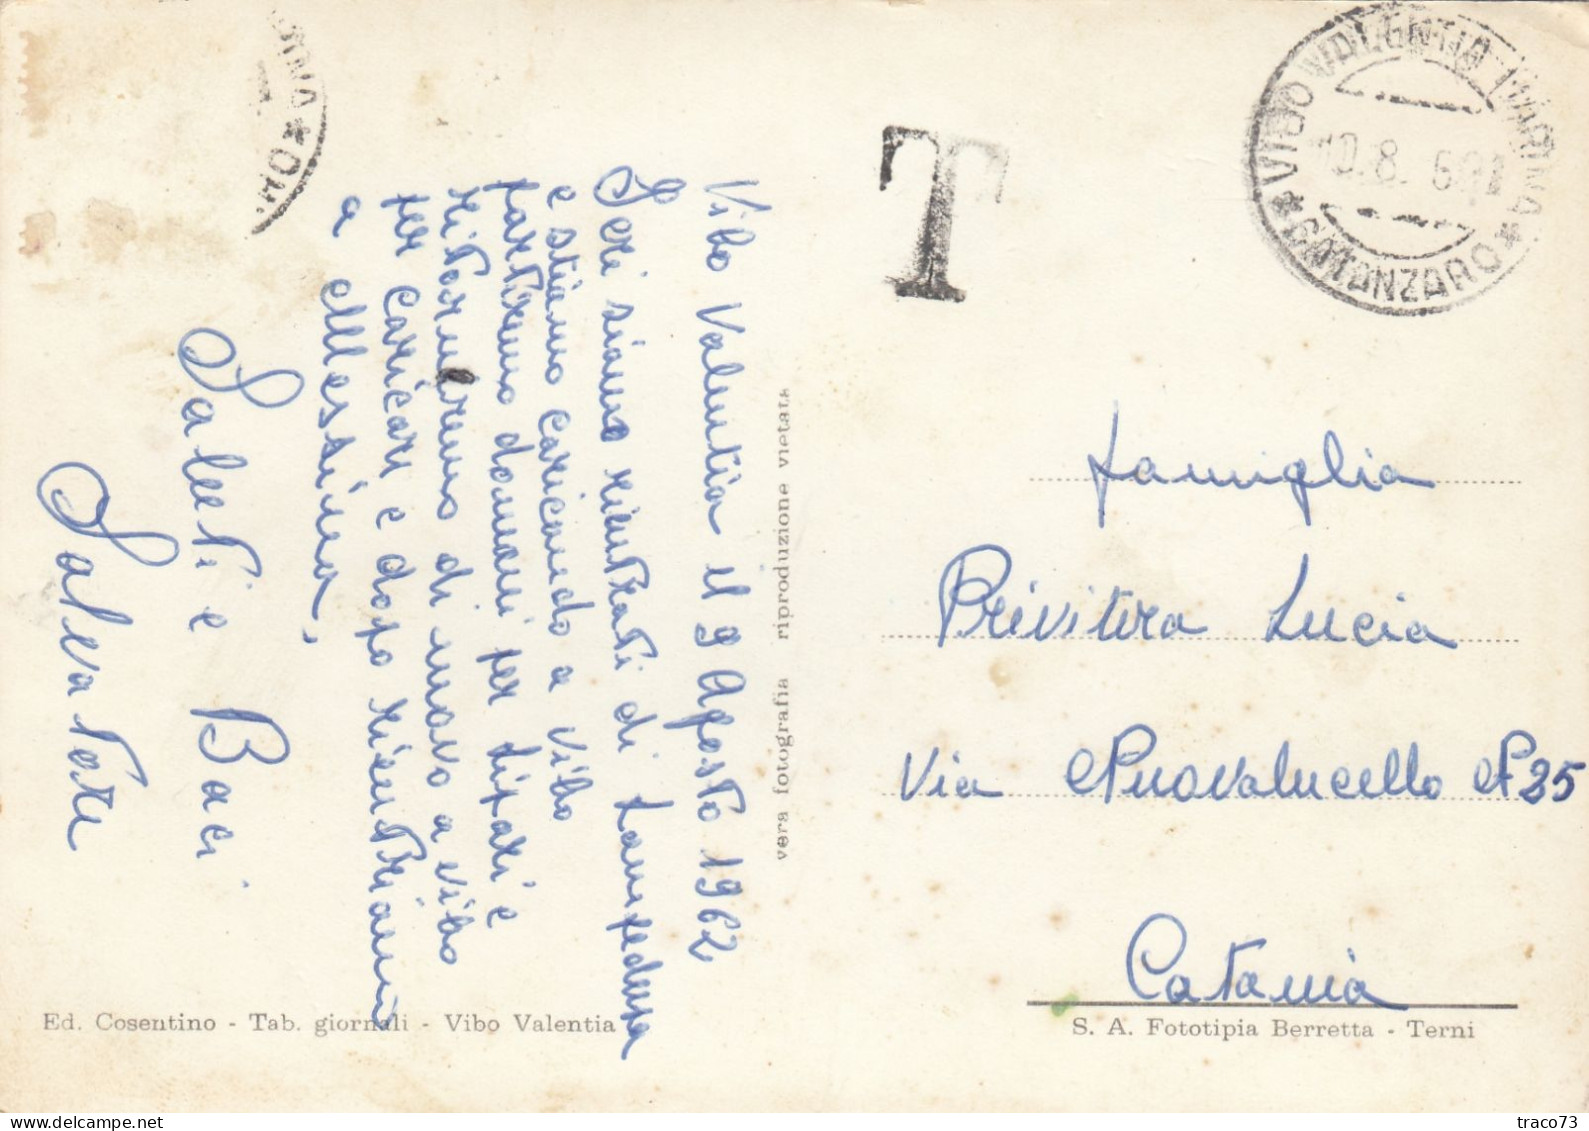 Vibo Valentia il 9 Agosto 1962
Ieri siamo rientrati di Lampedusa
e stiamo caricando a Vibo
partiremo domani per Lipari e
ritorneremo di nuovo a Vibo
per caricari e dopo rientriamo
a Messina,
Saluti e Baci
Salvatore
vera fotografia riproduzione vietata
T
VIBO VALENTIA MARINA
10.8.62
* CATANZARO *
famiglia
Privitera Lucia
Via Nuovalucello N 25
Catania
Ed. Cosentino - Tab. giornali - Vibo Valentia
S. A. Fototipia Berretta - Terni
traco73